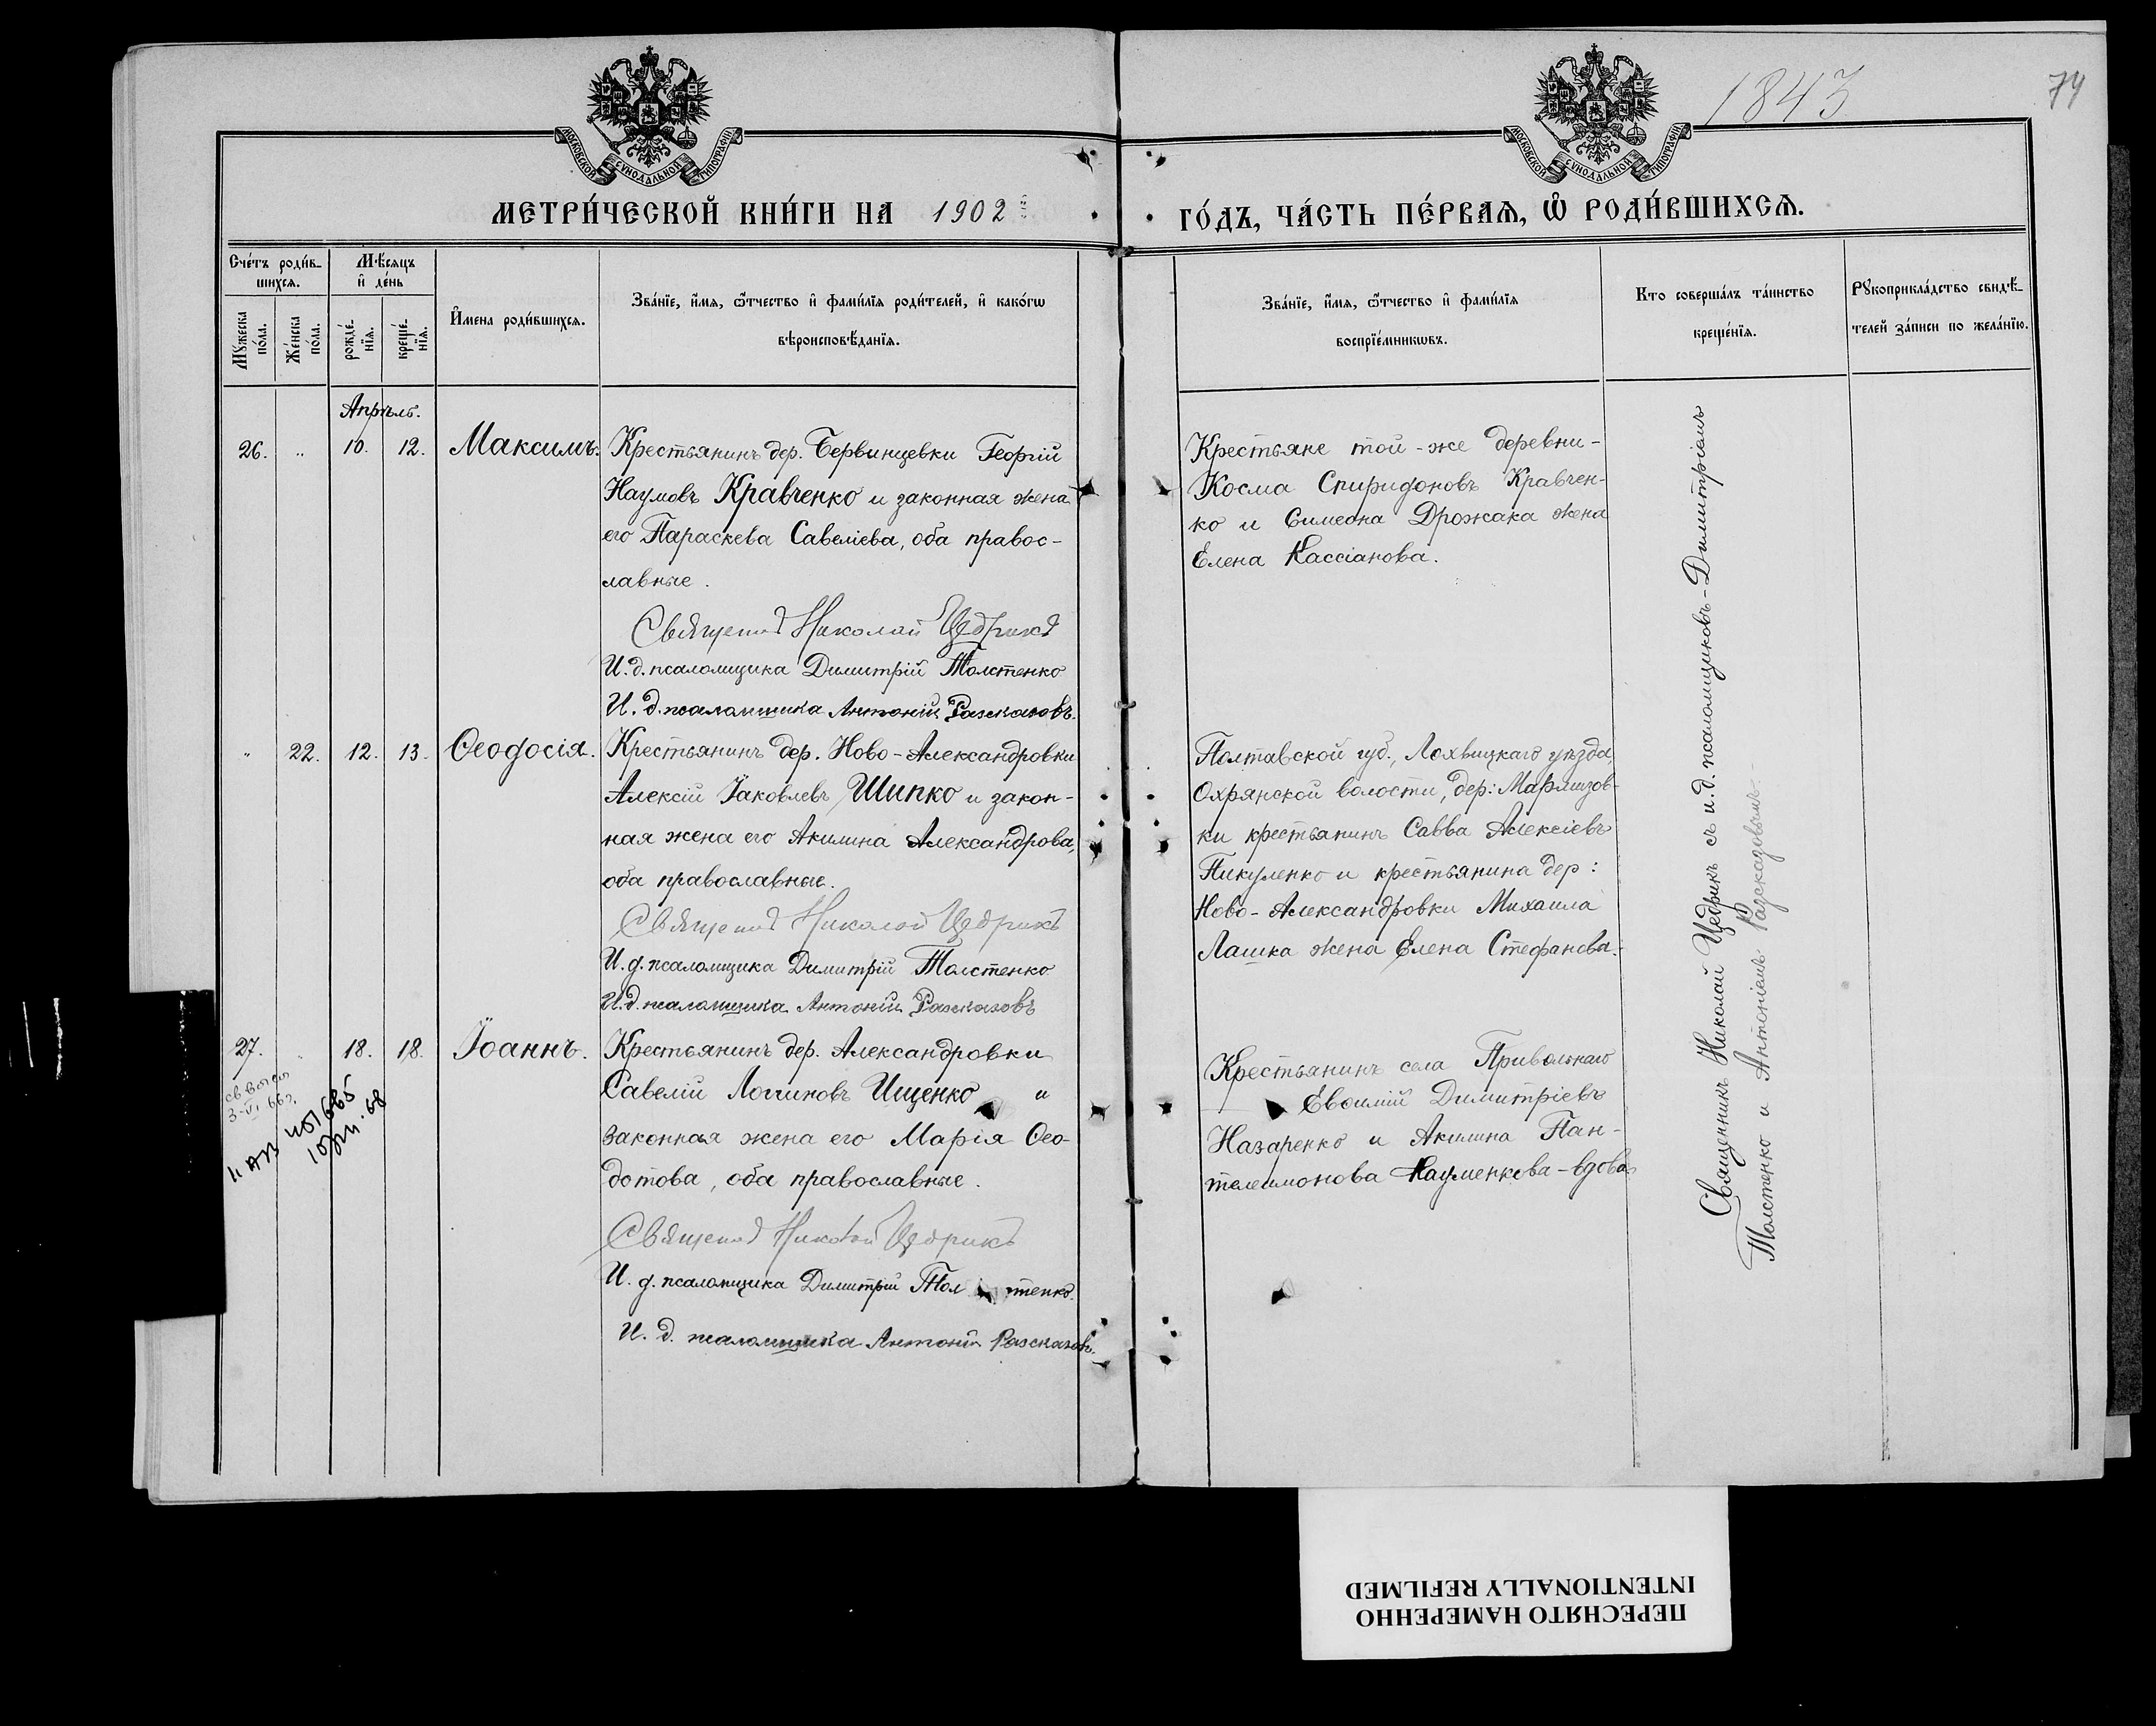 1843
74
МОСКОВСКОЙ СУНОДАЛЬНОЙ ТИПОГРАФІИ
МОСКОВСКОЙ СУНОДАЛЬНОЙ ТИПОГРАФІИ
МЕТРИ́ЧЕСКОЙ КНИ́ГИ НА 1902
ГО́ДЪ, ЧА́СТЬ ПЕ́РВАѦ, Ѽ РОДИ́ВШИХСѦ.
Сче́тъ роди́в-
шихсѧ.
Мꙋ́жеска по́ла.
Же́нска по́ла.
Мѣ́сяцъ
и҆ де́нь
рожде́-
нїѧ.
креще́-
нїѧ.
И҆мена роди́вшихсѧ.
Зва́нїе, и҆́мѧ, ѻ҆́тчество и҆ фами́лїѧ роди́телей, и҆ како́гѡ
вѣроисповѣ́данїѧ.
Зва́нїе, и҆́мѧ, ѻ҆́тчество и҆ фами́лїѧ
воспрїе́мникѡвъ.
Кто соверша́лъ та́инство
креще́нїѧ.
Рꙋкоприкла́дство свидѣ́-
телей за́писи по жела́нїю.
Апрѣль.
26. „ 10. 12. Максимъ.
Крестьянинъ дер. Бервинцевки Георгій
Наумовъ Кравченко и законная жена
его Параскева Савеліева, оба правос-
лавные.
Священ Николай Цедрикъ
И. д. псаломщика Димитрій Толстенко
И. д. псаломщика Антоній Разсказовъ.
Крестьяне той-же деревни-
Косма Спиридоновъ Кравчен-
ко и Симеона Дрожака жена
Елена Кассіанова.
„ 22. 12. 13. Ѳеодосія.
Крестьянинъ дер. Ново-Александровки
Алексій Іаковлевъ Шипко и закон-
ная жена его Акилина Александрова,
оба православные.
Священ Николай Цедрикъ
И. д. псаломщика Димитрій Толстенко
И. д. псаломщика Антоній Разсказовъ
Полтавской губ., Лохвицкаго уѣзда,
Охрянской волости, дер:
ки крестьянинъ Савва Алексіевъ
Пикуленко и крестьянина дер:
Ново-Александровки Михаила
Лашка жена Елена Стефанова.
27. „ 18. 18. Іоаннъ.
3-VI 66г.
Крестьянинъ дер. Александровки
Савелій Логгиновъ Ищенко и
законная жена его Марія Ѳео-
дотова, оба православные.
Священ Николай Цедрикъ
И. д. псаломщика Димитрій Толстенко.
И. д. псаломщика Антоній Разсказовъ.
Крестьянинъ села Привольнаго
Евѳимій Димитріевъ
Назаренко и Акилина Пан-
телеимонова Науменкова-вдова
Священникъ Николай Цедрикъ съ и. д. псаломщиковъ-Димитріемъ
Толстенко и Антоніемъ Разсказовымъ.-
ПЕРЕСНЯТО НАМЕРЕННО
INTENTIONALLY REFILMED